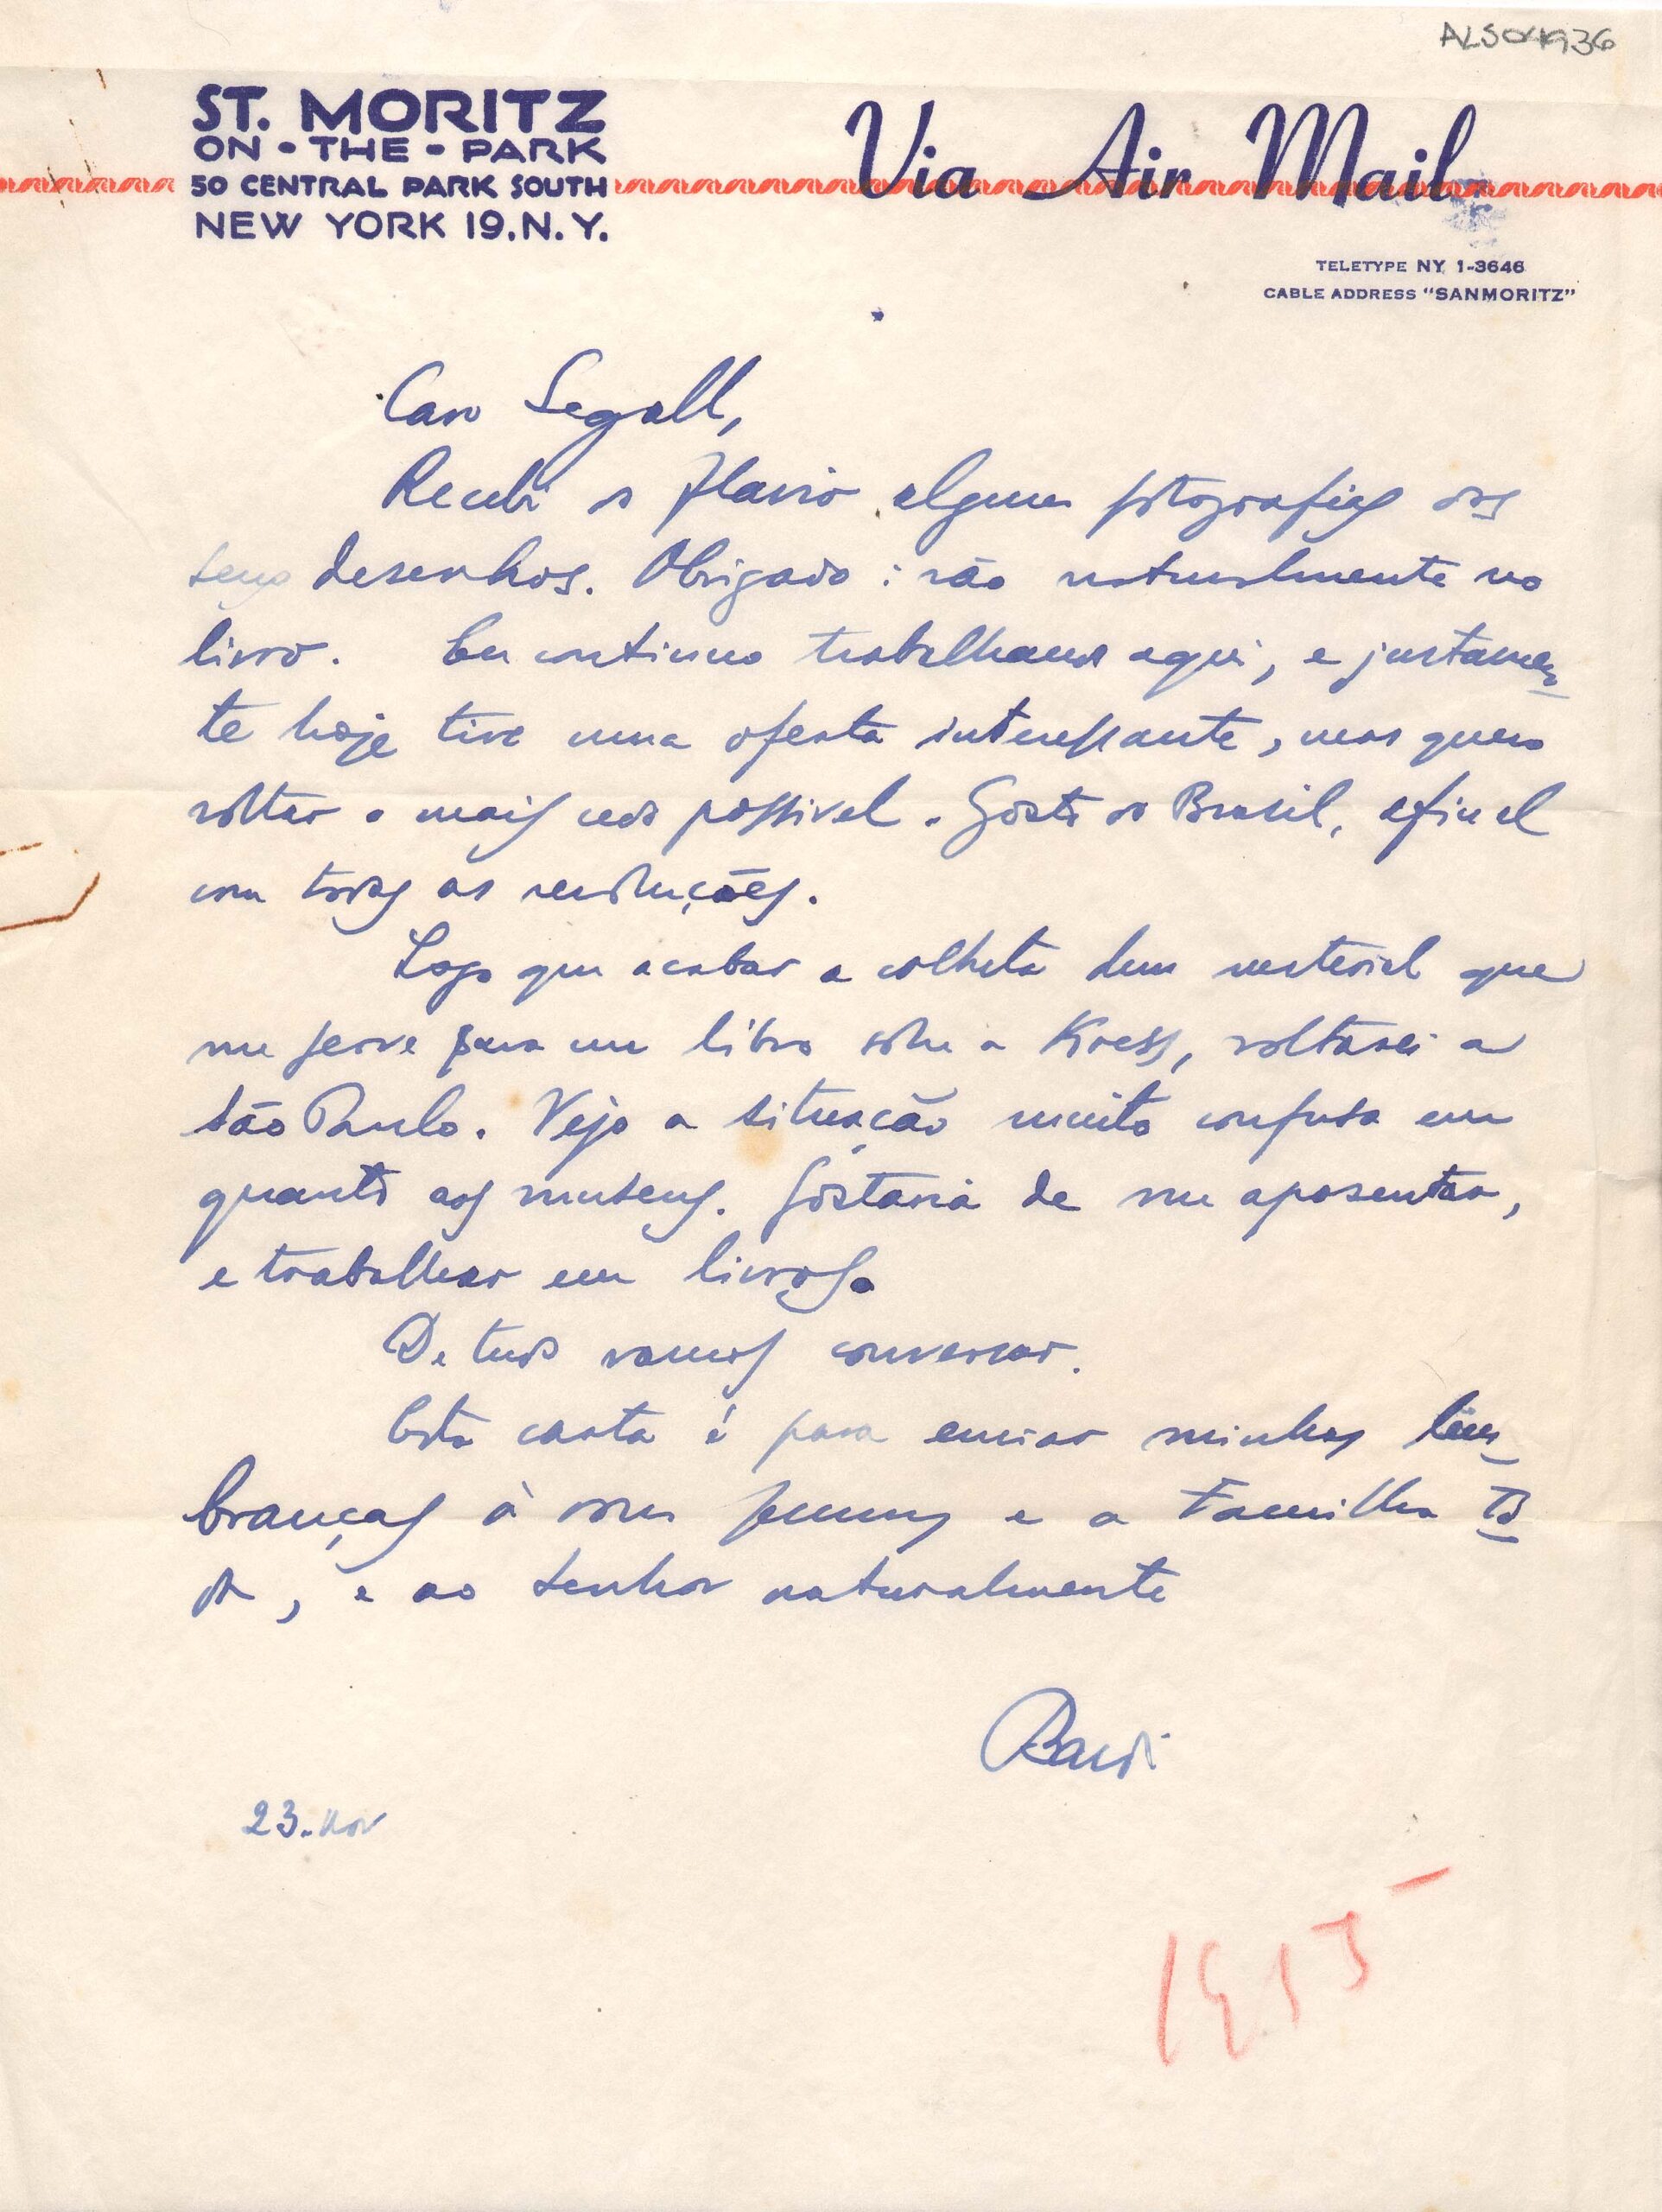 ALS04936
ST. MORITZ
ON-THE-PARK
50 CENTRAL PARK SOUTH
NEW YORK 19.N.Y.
Via Air Mail
TELETYPE NY 1-3646
CABLE ADDRESS "SANMORITZ"
Caro Segall,
Recebi o Flavio algumas fotografias dos
seus desenhos. Obrigado: vão naturalmente no
livro. Eu continuo trabalhando aqui, e justamen
te hoje tive uma oferta interessante, mas quero
voltar o mais cedo possivel. Gosto do Brasil, afinal
com todas as revoluções.
Logo que acabar a colheta dum material que
me serve para um libro sobre a Kress, voltarei a
São Paulo. Vejo a situação muito confusa em
quanto aos museus. Gostaria de me aposentar,
e trabalhar em livros.
De tudo vamos conversar.
Esta carta é para enviar minhas lem
branças à dona Jenny e a familha to
da, e ao senhor naturalmente
Bardi
23. Nov
1955